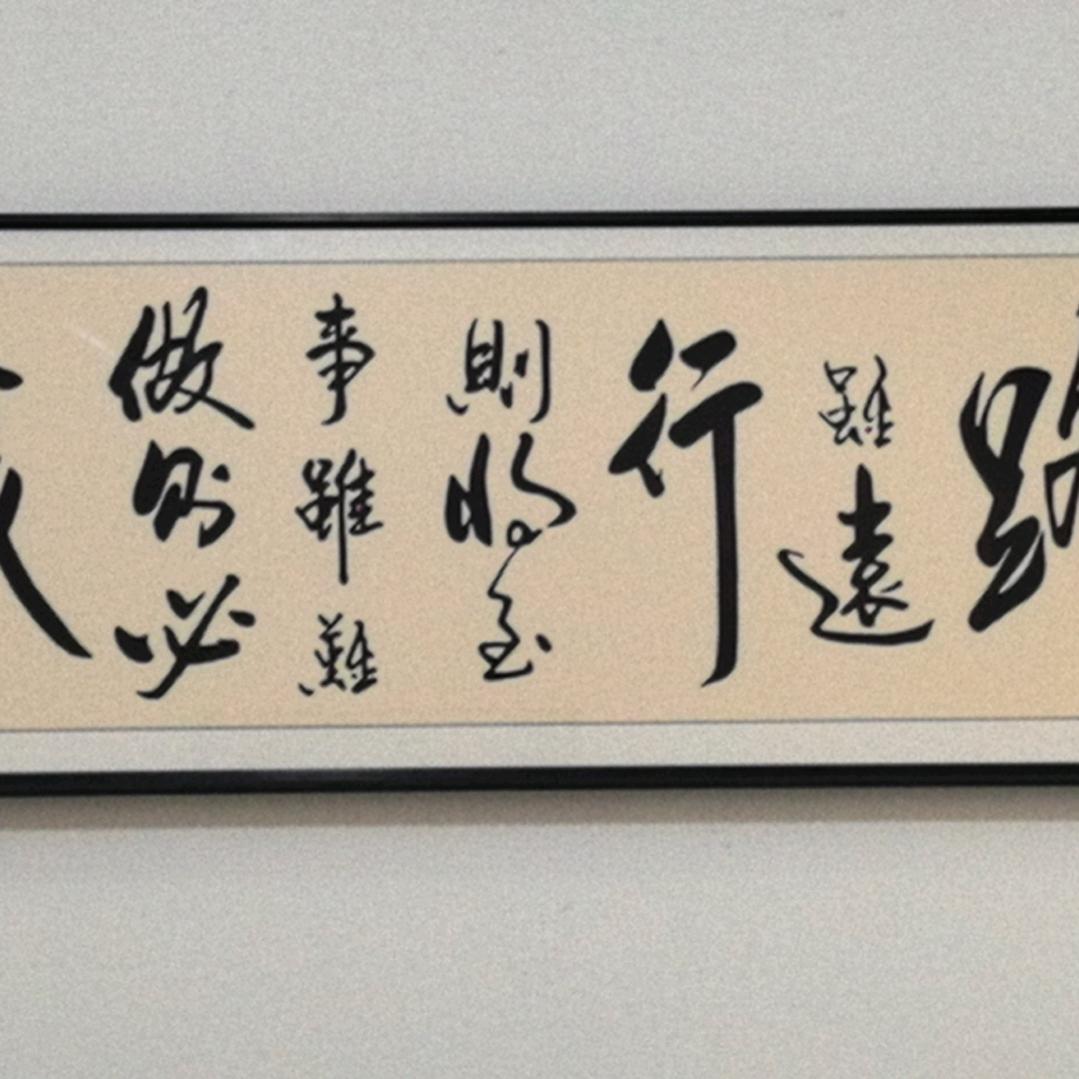 路
雖遠
行
則將至
事雖難
做則必
成